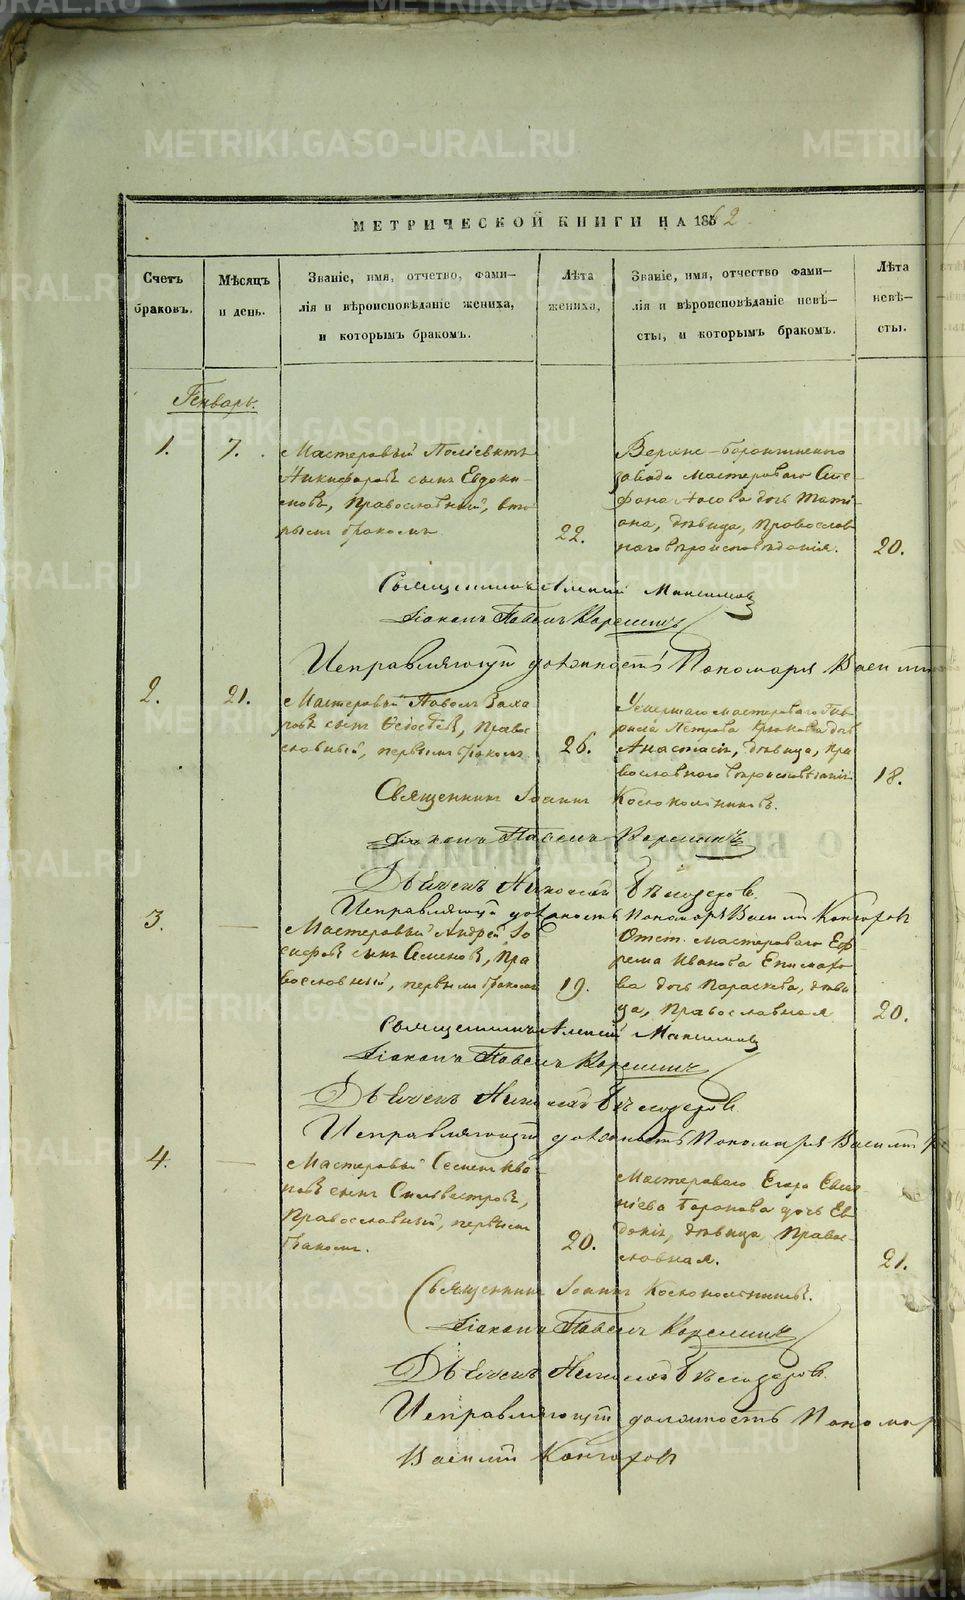 МЕТРИЧЕСКОЙ КНИГИ НА 1862
Счетъ браковъ.
Мѣсяцъ и день.
Званіе, имя, отчетво, фами-
лія и вѣроисповѣданіе жениха,
и которымъ бракомъ.
Лѣта жениха,
Званіе, имя, отчество фами-
лія и вѣроисповѣданіе невѣ-
сты, и которымъ бракомъ.
Лѣта невѣ-
сты.
Генварь.
1.
7.
Мастеровый Поліевктъ
Никифоровъ сынъ Евдоки-
мовъ, Православный, вто
рымъ бракомъ
22.
Верхне-
завода мастероваго Сте-
фана Носова дочь Тати-
ана, дѣвица, Православ
наго вѣроисповѣданія.
20.
Священникъ Алексій Максимовъ
Діаконъ Павелъ
Исправляющій должность Пономаря Василій
2.
21.
Мастеровый Павелъ Заха
ровъ сынъ Ѳедосѣевъ, Право
славный, первымъ бракомъ
26.
Умершаго мастероваго Гав-
рила Петрова Крюкова дочь
Анастасія, дѣвица, пра
вославнаго вѣроисповѣданія
18.
Священникъ Іоаннъ
Діаконъ Павелъ
Дьячекъ Николай Бѣлозеровъ.
Исправляющій должность Пономаря Василій
3.
Мастеровый Андрей Іо
сифовъ сынъ Семеновъ, Пра
вославный, первымъ бракомъ
19.
Отст. мастероваго Еф
рема Иванова
ва дочь Параскева, дѣви
ца, Православная
20.
Священникъ Алексій Максимовъ
Діаконъ Павелъ
Дьячекъ Николай Бѣлозеровъ
Исправляющій должность Пономаря Василій
4.
Мастеровый Семенъ Ива
новъ сынъ Сильвестровъ,
Православный, первымъ
бракомъ.
20.
Мастероваго Егора Евге-
ніева дочь Ев
докія, дѣвица, Право-
славная.
21.
Священникъ Іоаннъ
Діаконъ Павелъ
Дьячекъ Николай Бѣлозеровъ.
Исправляющій должность Пономар
Василій
METRIKI.GASO-URAL.RU